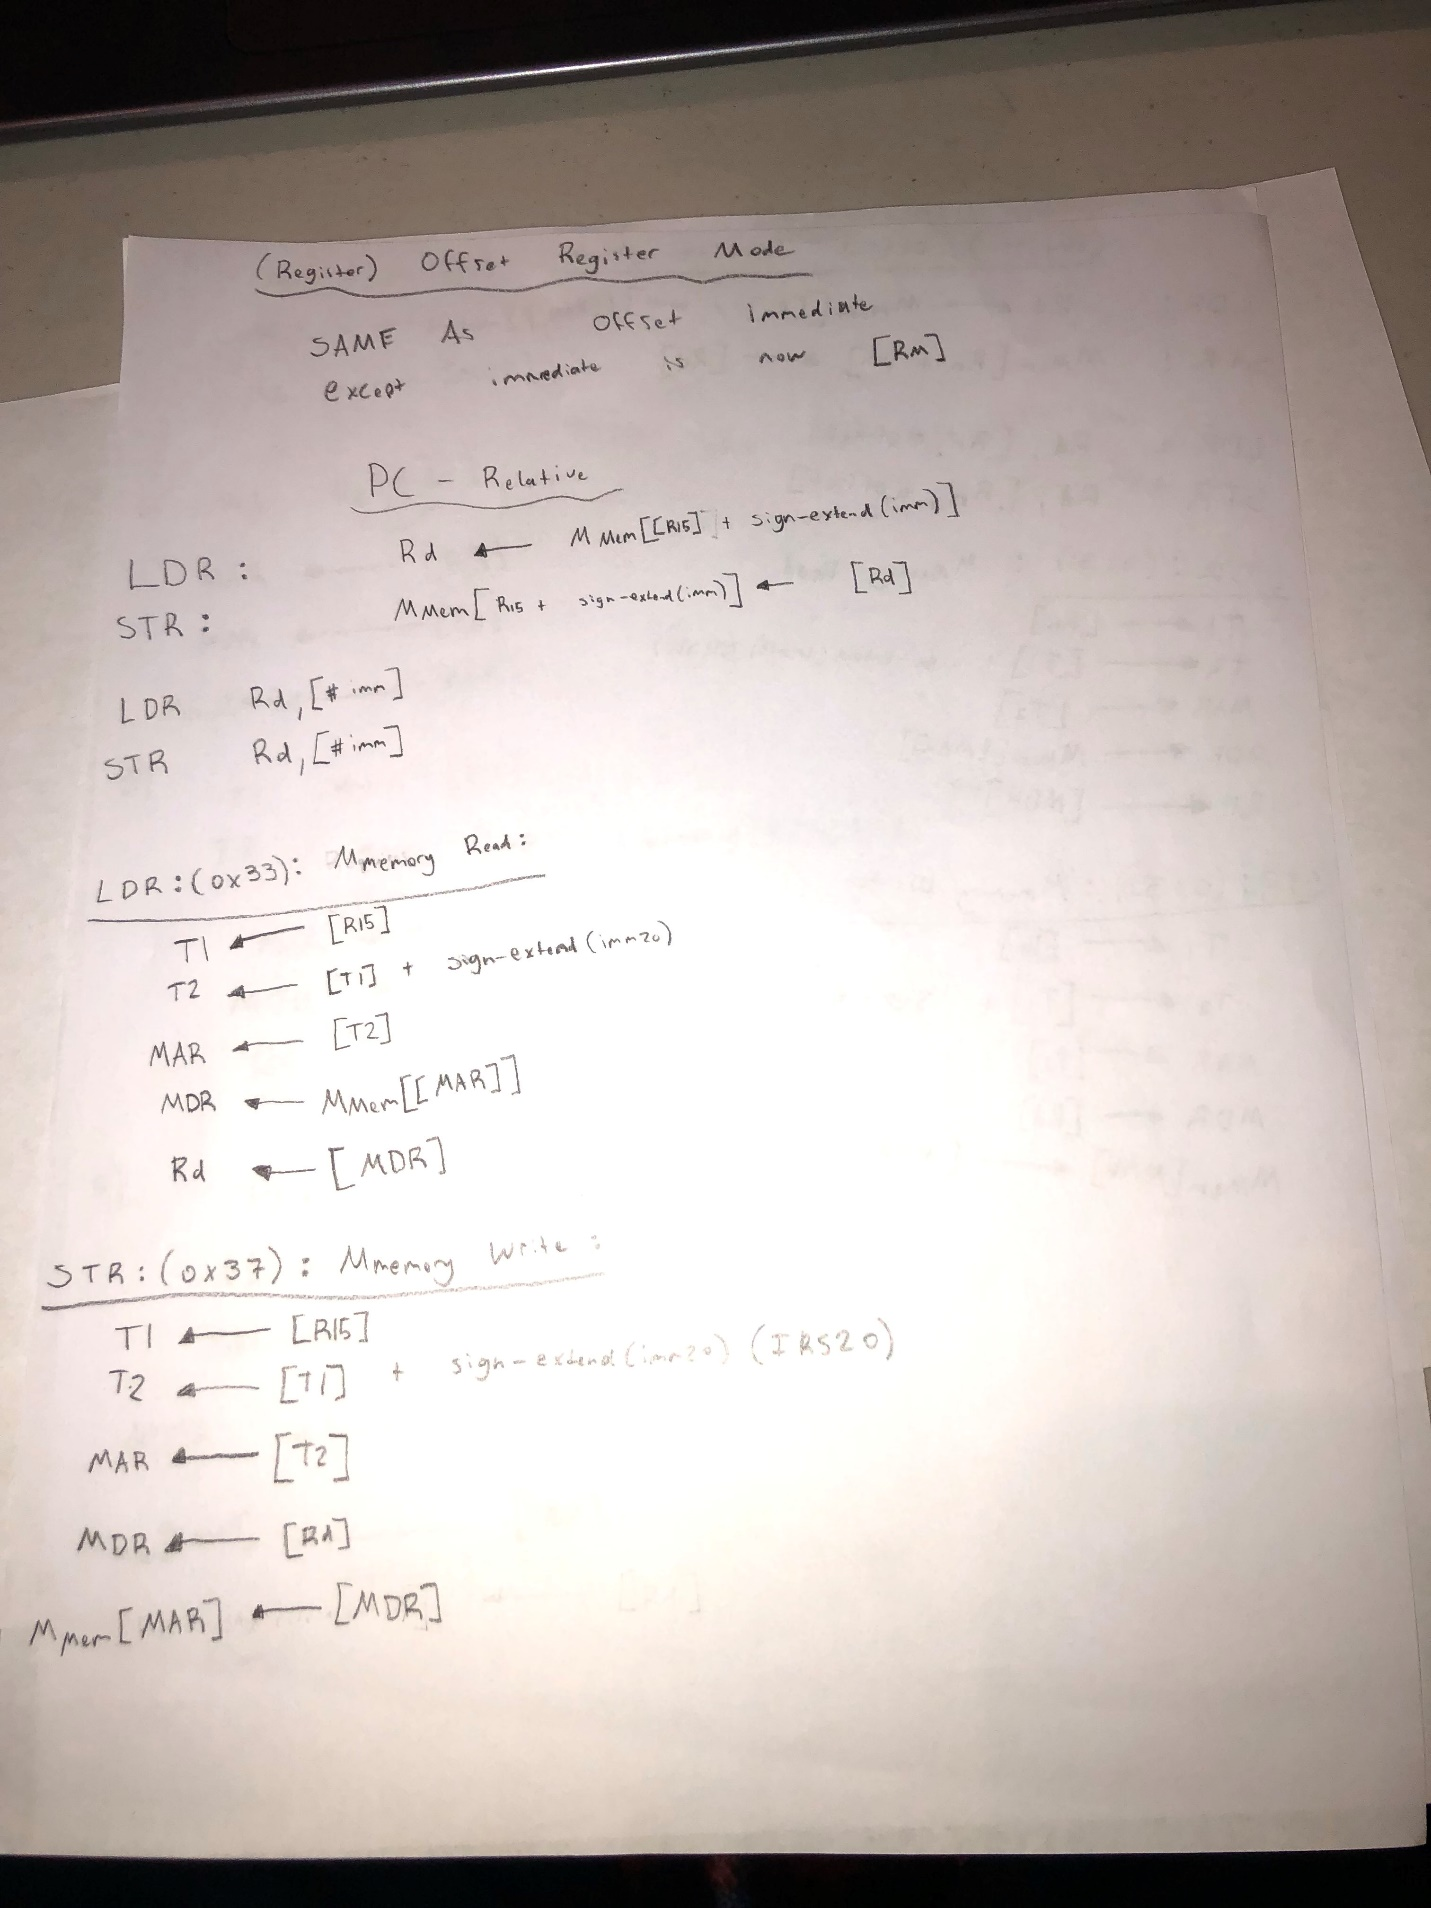 (Register) Offset Register Mode
SAME As Offset immediate
except immediate is now [Rm]
PC - Relative
LDR : Rd ← MMem[[R15] + sign-extend(imm)]
STR : MMem[R15 + sign-extend(imm)] ← [Rd]
LDR Rd, [#imm]
STR Rd, [#imm]
LDR:(0x33): Mmemory Read:
T1 ← [R15]
T2 ← [T1] + sign-extend(imm20)
MAR ← [T2]
MDR ← MMem[[MAR]]
Rd ← [MDR]
STR:(0x37): Mmemory Write:
T1 ← [R15]
T2 ← [T1] + sign-extend(imm20) (IRS20)
MAR ← [T2]
MDR ← [Rd]
MMem[MAR] ← [MDR]